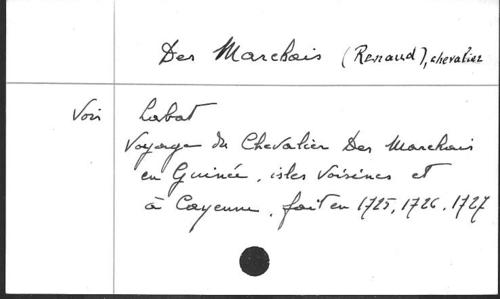 Des Marchais (Renaud), chevalier
Voir Labat
Voyage du Chevalier Des Marchais
en Guinée, isles voisines et
à Cayenne, fait en 1725, 1726, 1727